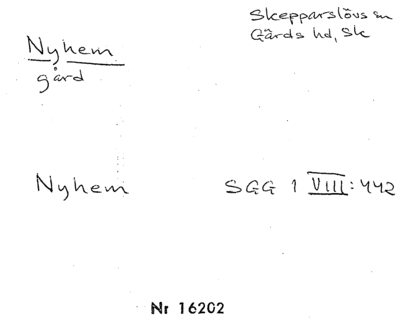 Skepparslövs sn
Gärds hd, Sk
Nyhem
gård
Nyhem SGG 1 VIII:442
Nr 16202